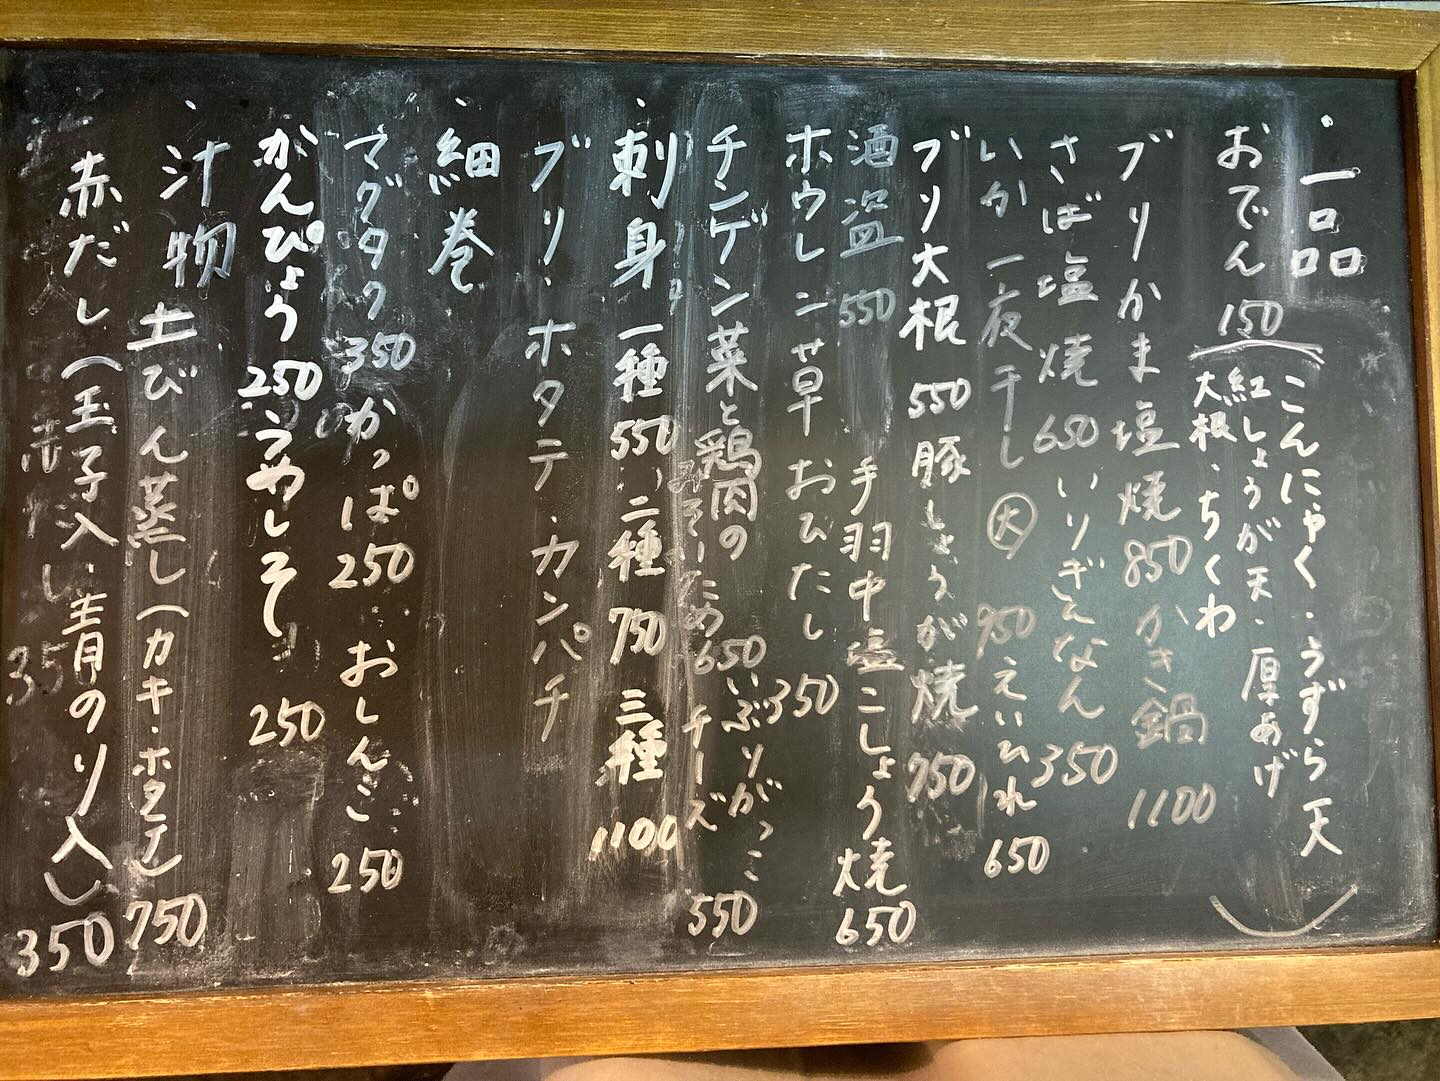 ・一品
おでん 150
こんにゃく・うずら天
紅しょうが天・厚あげ
大根・ちくわ
ブリかま塩焼 850 かき鍋 1100
さば塩焼 650 いりぎんなん 350
いか一夜干し 大 950 えいひれ 650
ブリ大根 550 豚しょうが焼 750
酒盗 550 手羽中塩こしょう焼 650
ホウレン草おひたし 350
チンゲン菜と鶏肉の
みそいため 650 いぶりがっこ
チーズ 550
・刺身 一種 550、二種 750 三種 1100
ブリ・ホタテ・カンパチ
・細巻
マグタク 350 かっぱ 250 おしんこ 250
かんぴょう 250 うめしそ 250
・汁物 土びん蒸し(カキ・ホタテ) 750
赤だし(玉子入り・青のり入り) 350